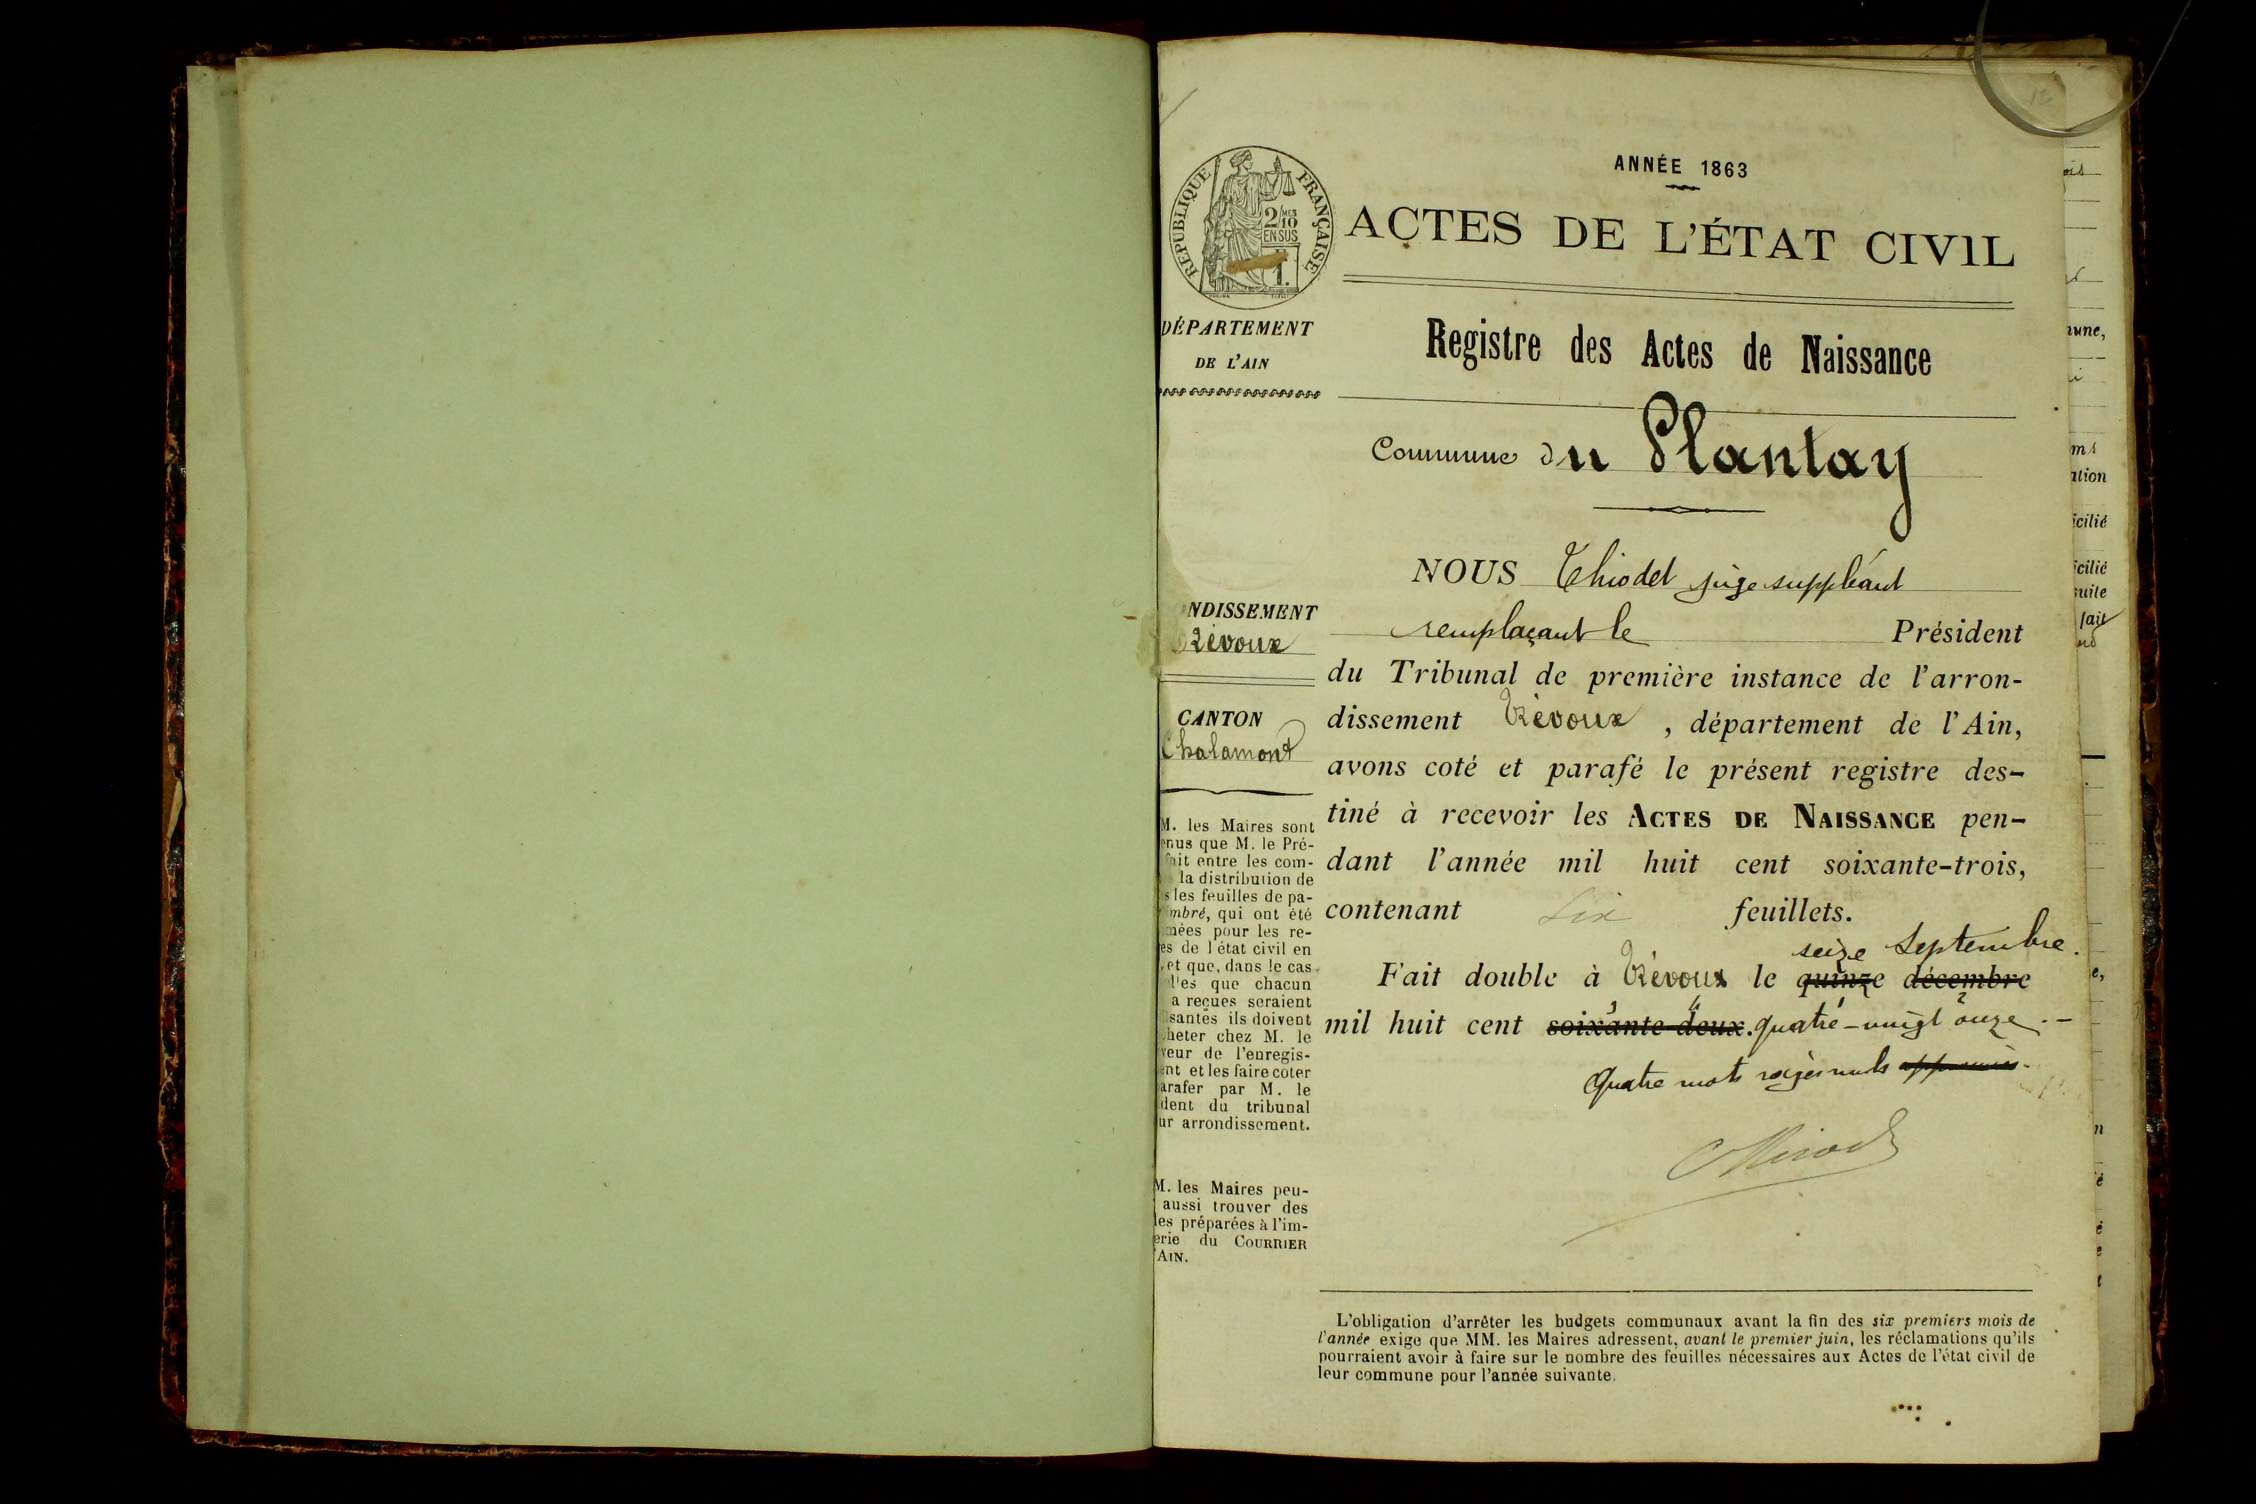 ANNÉE 1863
ACTES DE L'ÉTAT CIVIL
RÉPUBLIQUE FRANÇAISE
2/10 MES
EN SUS
1.
DÉPARTEMENT
DE L'AIN
Registre des Actes de Naissance
Commune du Plantay
NDISSEMENT
Trévoux
CANTON
Chalamont
M. les Maires sont
enus que M. le Pré-
fait entre les com-
la distribution de
s les feuilles de pa-
imbré, qui ont été
mées pour les re-
es de l'état civil en
et que, dans le cas
l'es que chacun
a reçues seraient
santes ils doivent
heter chez M. le
veur de l'enregis-
ent et les faire coter
arafer par M. le
dent du tribunal
ur arrondissement.
M. les Maires peu-
aussi trouver des
les préparées à l'im-
erie du COURRIER
'AIN.
NOUS Thiodet juge suppléant
remplaçant le Président
du Tribunal de première instance de l'arron-
dissement Trévoux, département de l'Ain,
avons coté et parafé le présent registre des-
tiné à recevoir les ACTES DE NAISSANCE pen-
dant l'année mil huit cent soixante-trois,
contenant six feuillets.
seize Septembre.
Fait double à Trévoux le quinze décembre
mil huit cent soixante-deux. quatre-vingt onze.-
Quatre mots rayés nuls
L'obligation d'arrêter les budgets communaux avant la fin des six premiers mois de
l'année exige que MM. les Maires adressent, avant le premier juin, les réclamations qu'ils
pourraient avoir à faire sur le nombre des feuilles nécessaires aux Actes de l'état civil de
leur commune pour l'année suivante.
mune,
ation
icilié
icilié
suite
fait